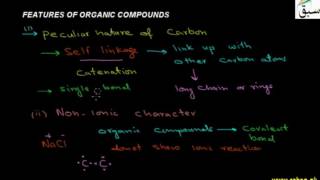 FEATURES OF ORGANIC COMPOUNDS
(i) Peculiar nature of Carbon
→ Self linkage → link up with
other Carbon atoms
Catenation
→ single bond long chain or rings
(ii) Non-ionic character
organic compounds → Covalent
bond
NaCl donot show ionic reaction
C C
سبق